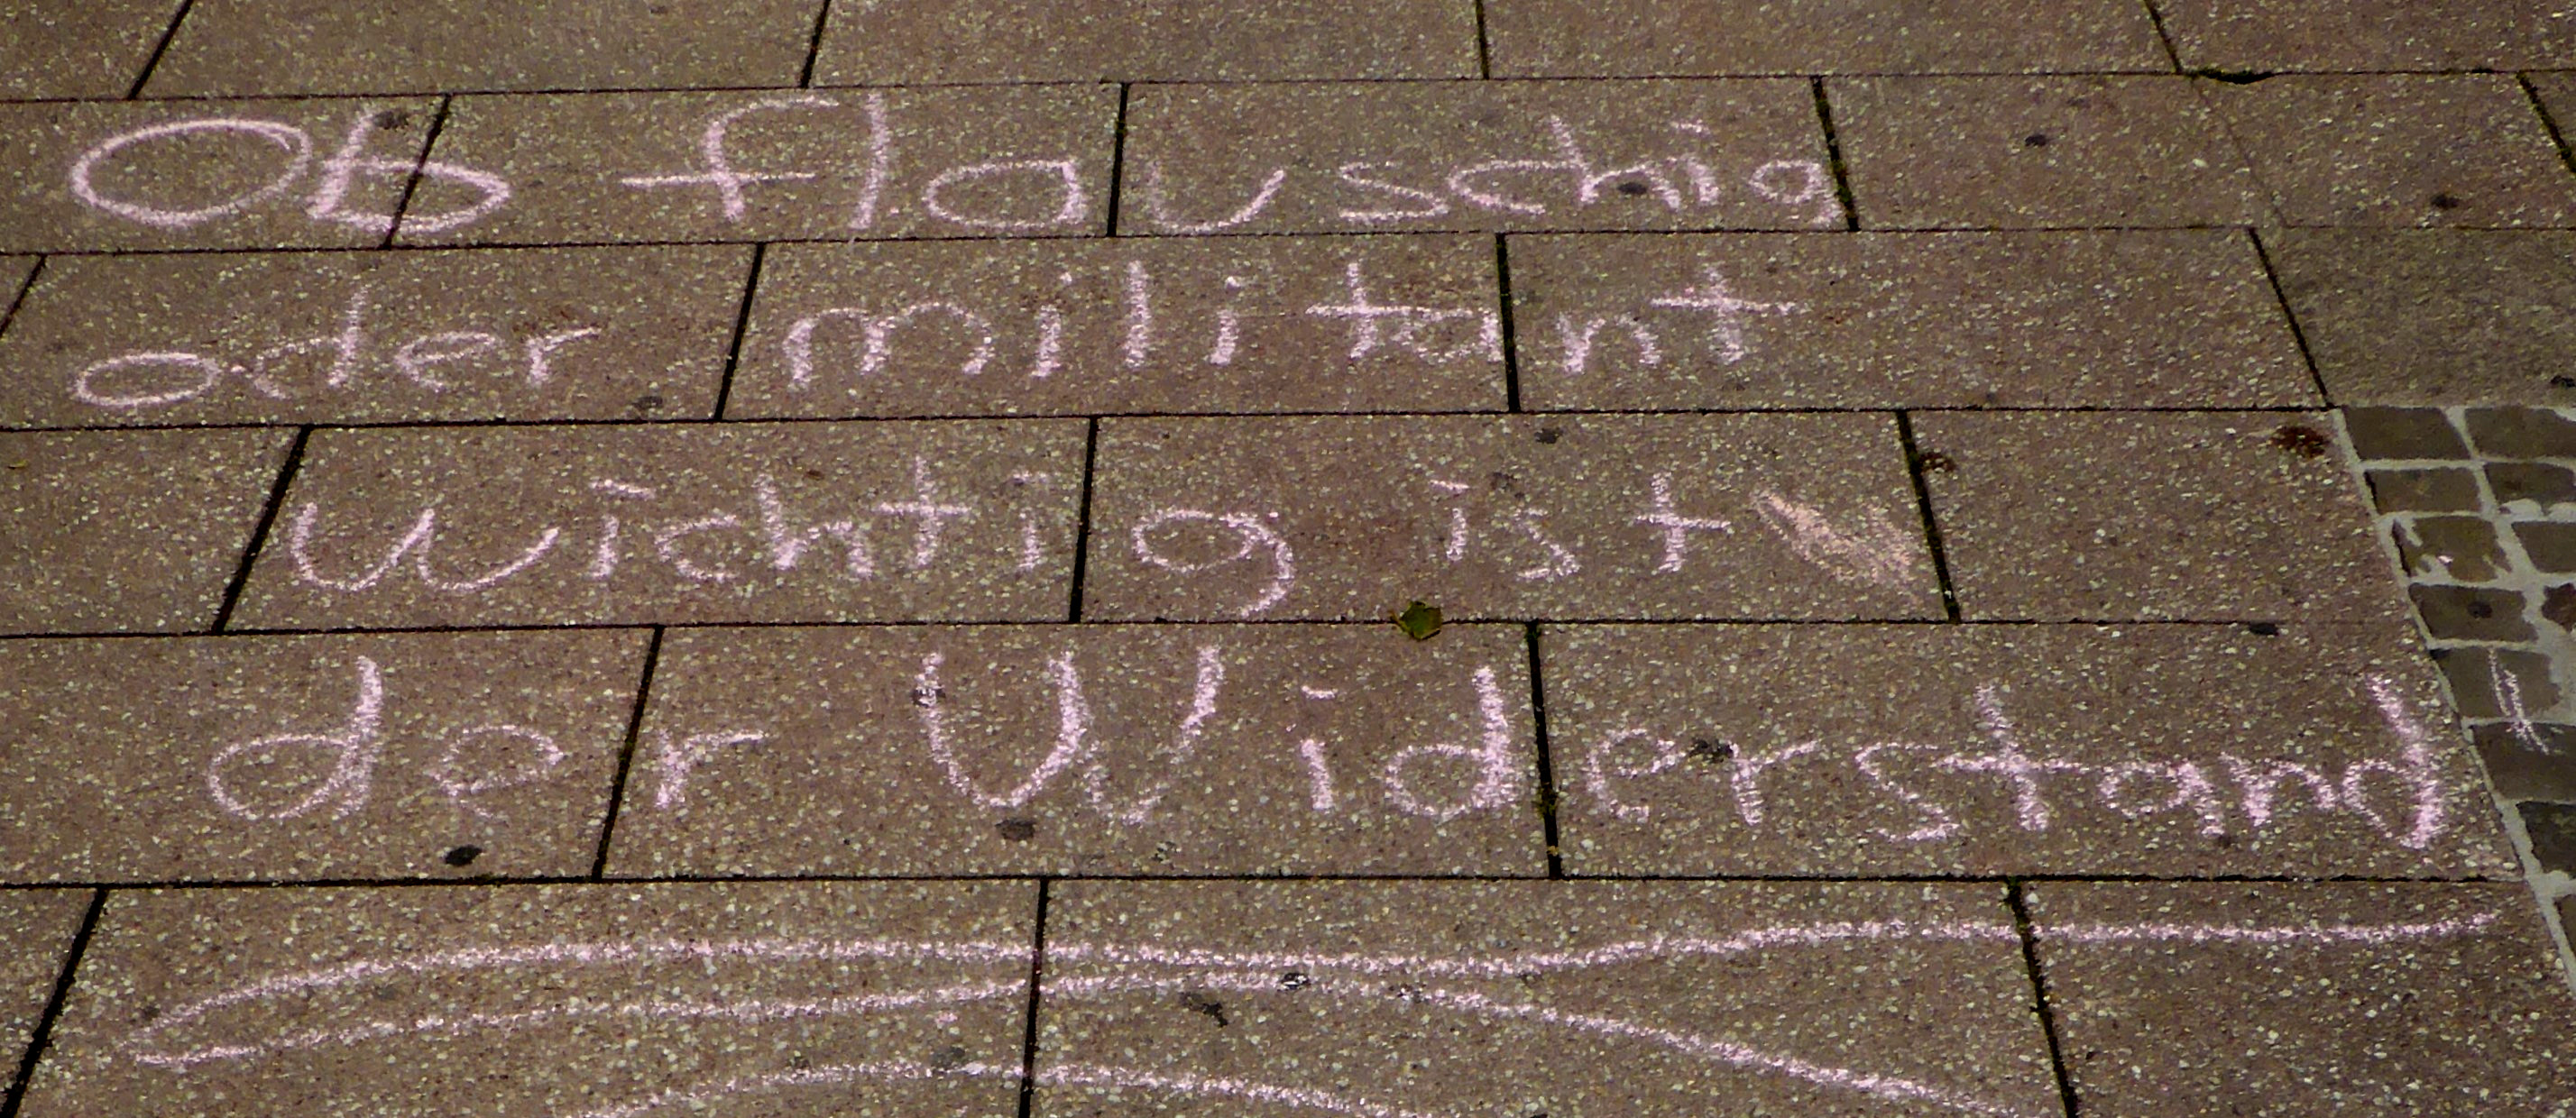 Ob flauschig
oder militant
wichtig ist
der Widerstand